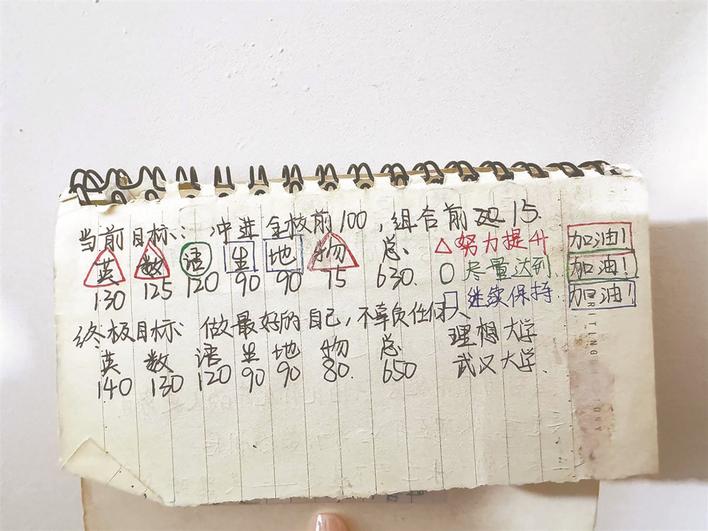 当前目标: 冲进全校前100,组合前15.
英 数 语 生 地 物 总 △努力提升 加油!
130 125 120 90 90 75 630. ○尽量达到. 加油!
□继续保持. 加油!
终极目标: 做最好的自己,不辜负任何人
英 数 语 生 地 物 总 理想大学
140 130 120 90 90 80. 650 武汉大学.